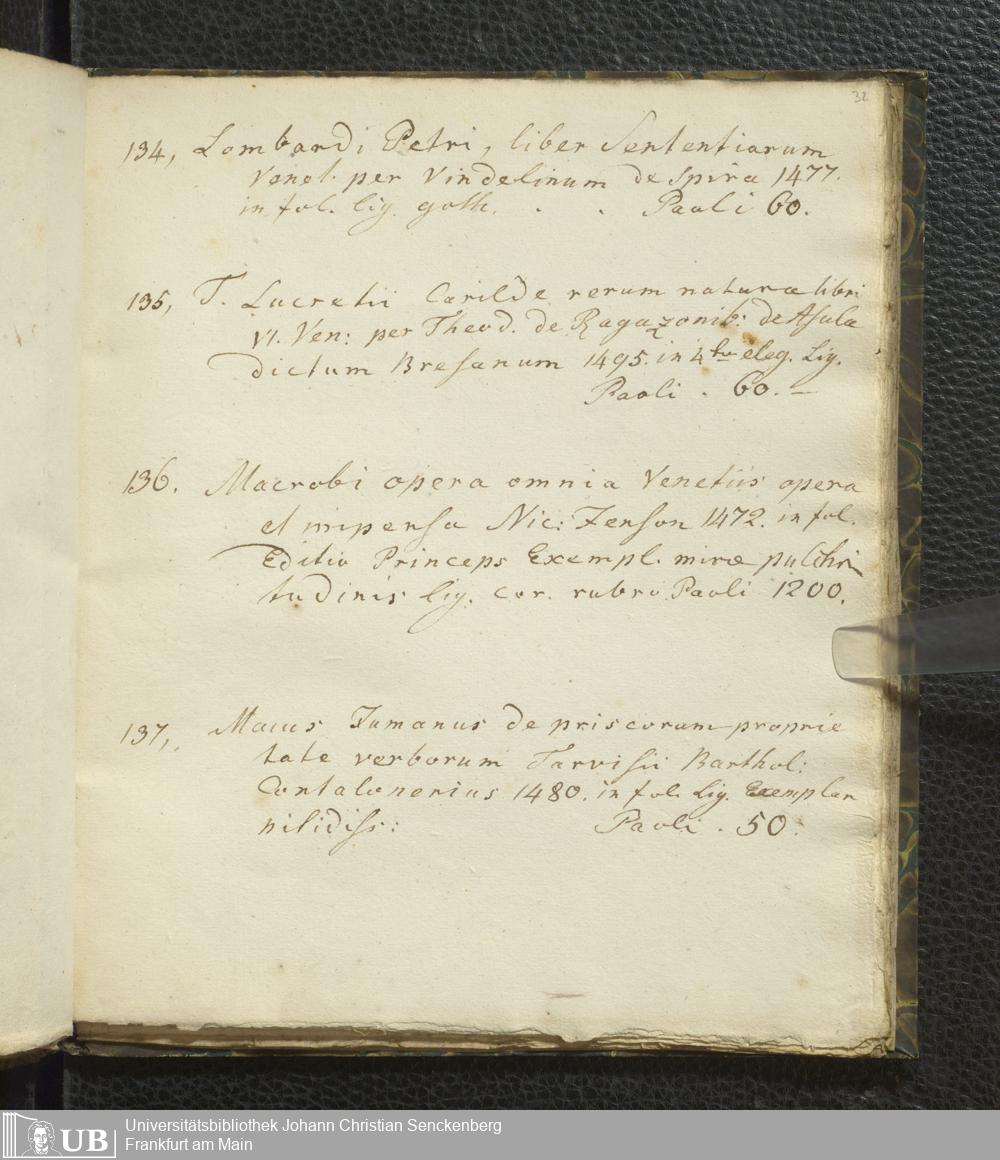 32
134, Lombardi Petri, liber Sententiarum
Venet. per Vindelinum de Spira 1477.
in fol. lig. goth. . . Paoli 60.
135, T. Lucretii Cari de rerum natura libri
VI. Ven: per Theod. de Ragazonib: de Asula
dictum Bresanum 1495. in 4to eleg. Lig.
Paoli . 60. —
136. Macrobi opera omnia Venetiis opera
et impensa Nic: Jenson 1472. in fol.
Editio Princeps Exempl. miræ pulchri
tudinis lig. cor. rubro. Paoli 1200.
137,. Maius Jumanus de priscorum proprie
tate verborum Tarvisii Barthol:
Contalonerius 1480. in fol. Lig. Exemplar
nitidiss: Paoli . 50.
UB
Universitätsbibliothek Johann Christian Senckenberg
Frankfurt am Main